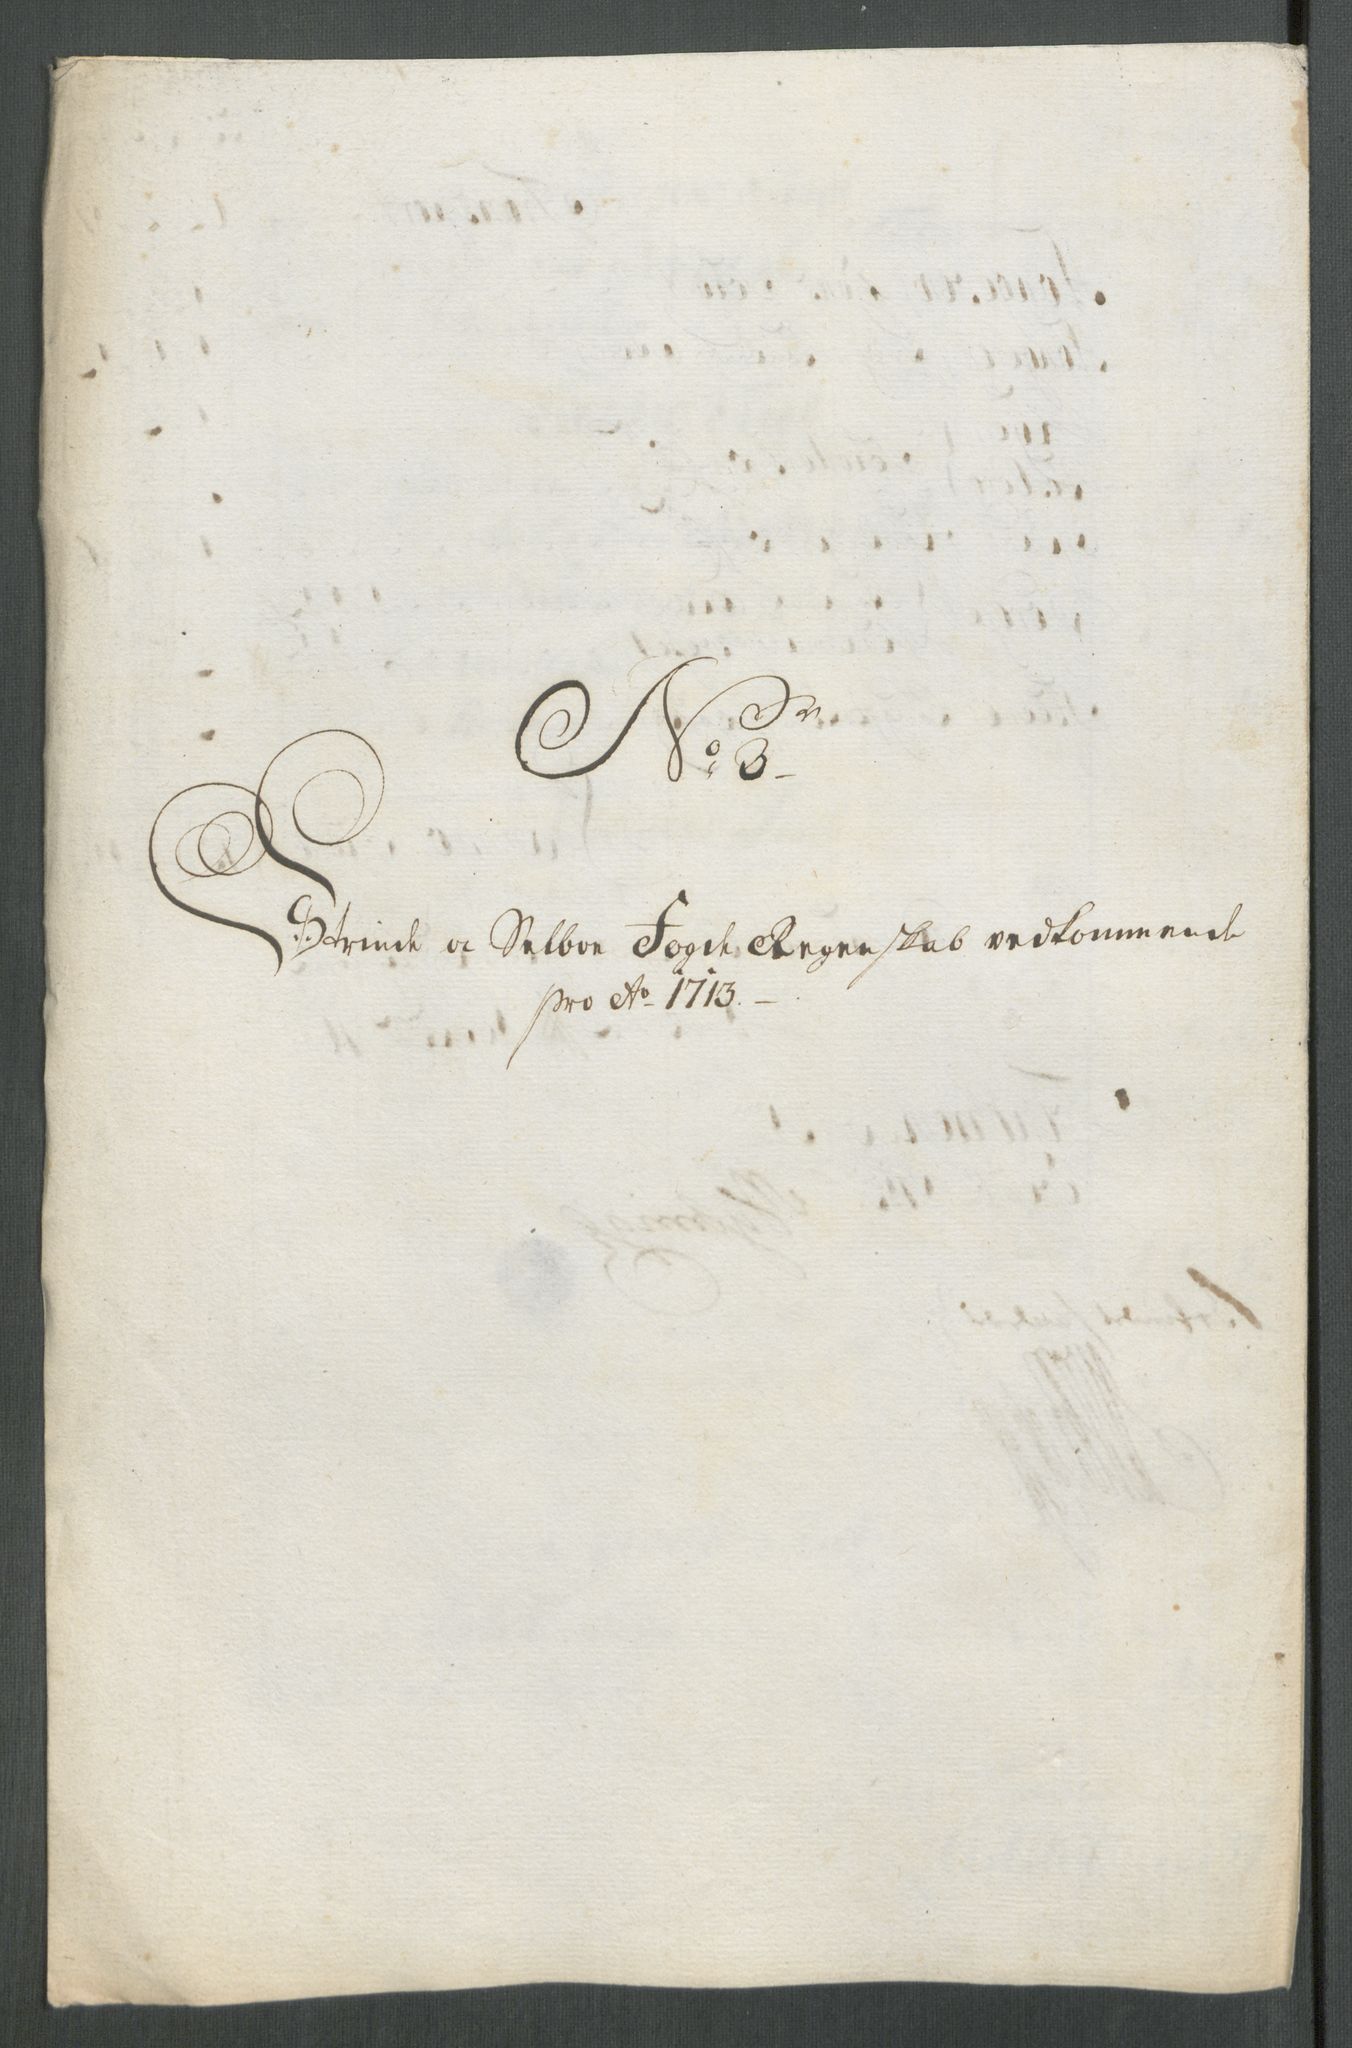 No: 3
Strinde oc Selboe Fogde Regenskab vedkommende
pro Ao 1713.